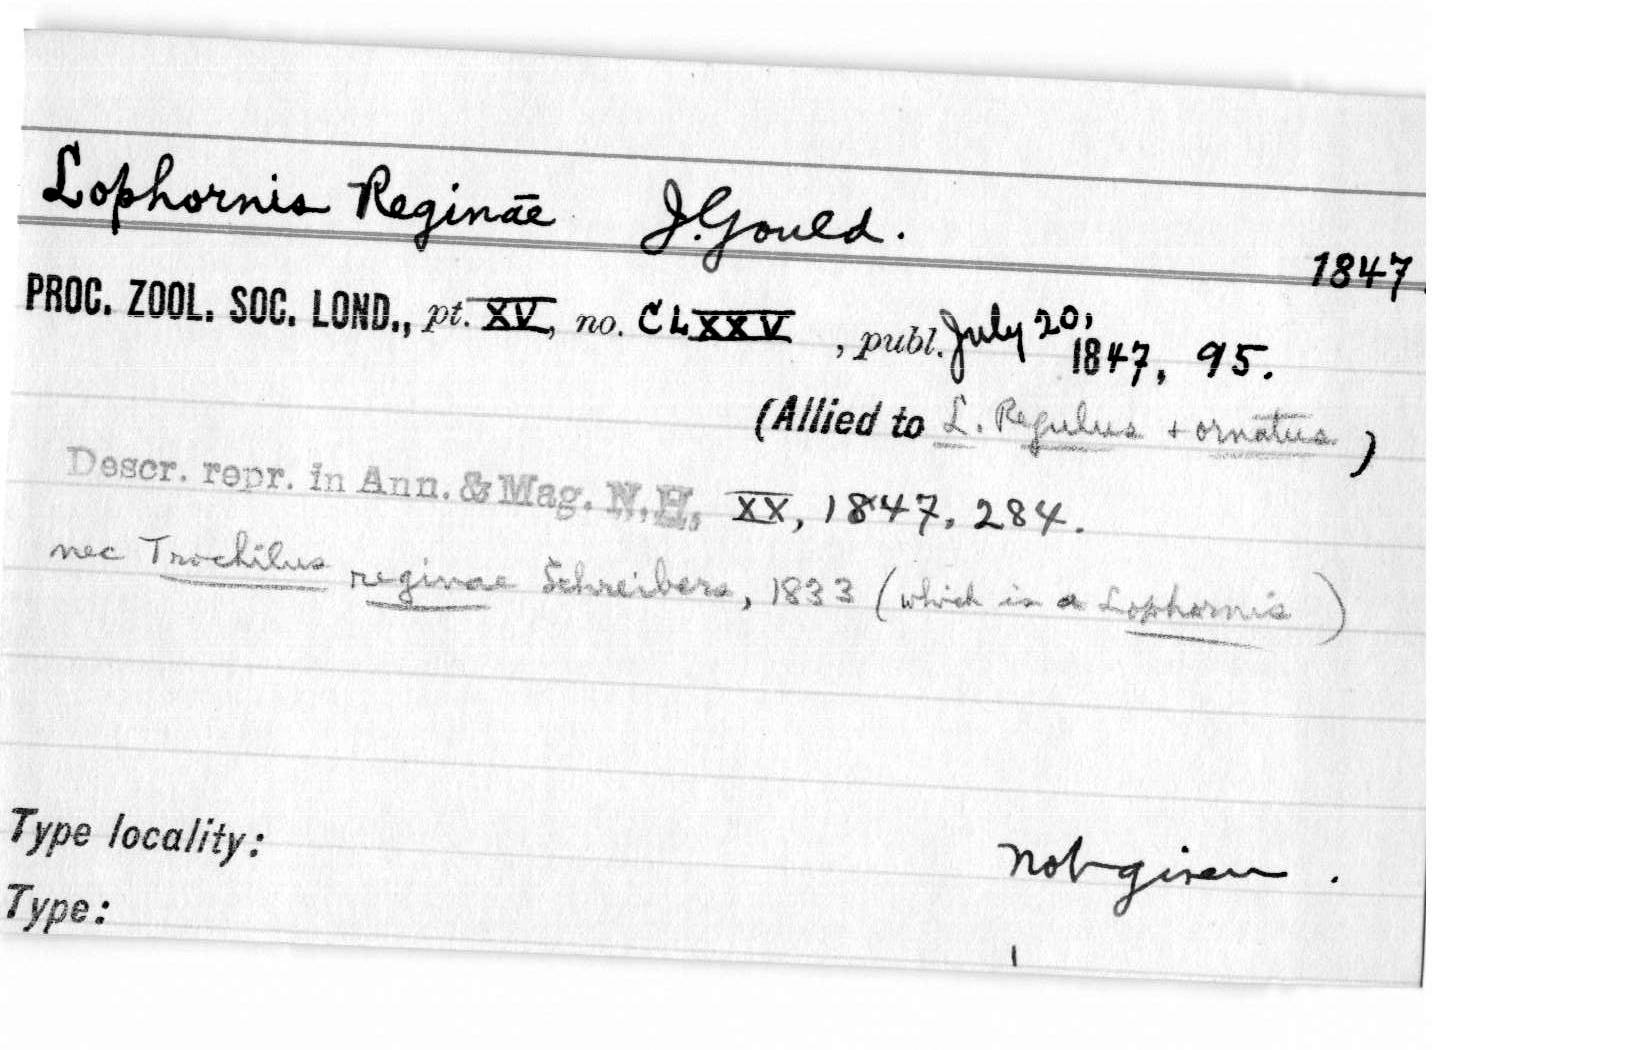 Lophornis Reginæ J. Gould.
1847.
PROC. ZOOL. SOC. LOND., pt. XV, no. CLXXV, publ. July 20, 1847, 95.
(Allied to L. Regulus + ornatus)
Descr. repr. in Ann. & Mag. N.H. XX, 1847, 284.
nec Trochilus reginae Schreibers, 1833 (which is a Lophornis)
Type locality: Not given.
Type: 1